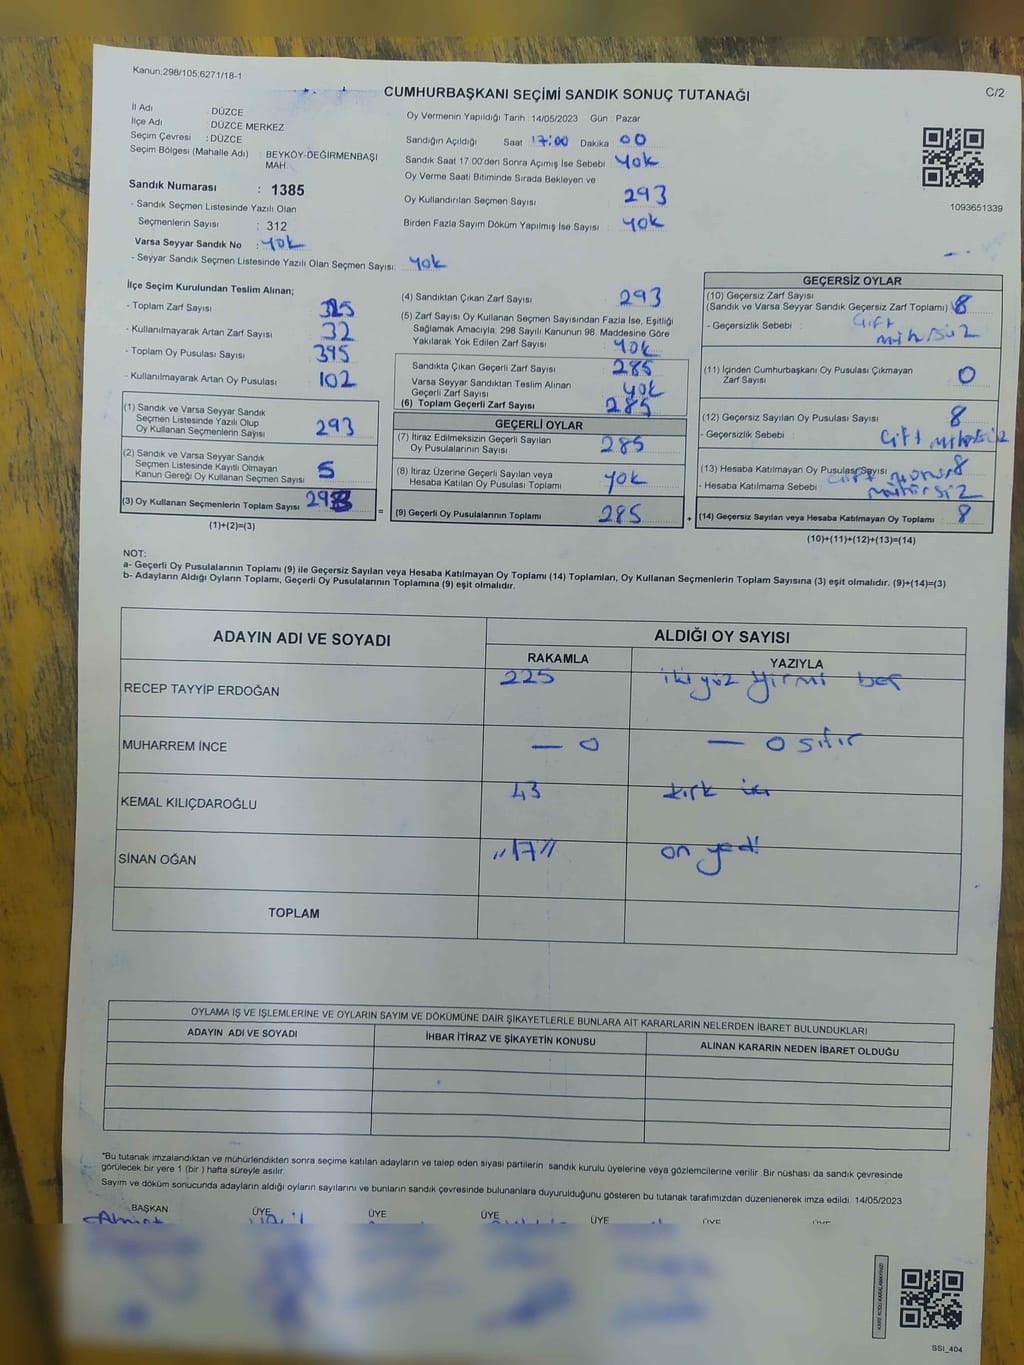 Kanun;298/105;6271/18-1
C/2
CUMHURBAŞKANI SEÇİMİ SANDIK SONUÇ TUTANAĞI
İl Adı DÜZCE
İlçe Adı DÜZCE MERKEZ
Seçim Çevresi : DÜZCE
Seçim Bölgesi (Mahalle Adı) : BEYKÖY-DEĞİRMENBAŞI MAH.
Sandık Numarası : 1385
- Sandık Seçmen Listesinde Yazılı Olan
Seçmenlerin Sayısı : 312
Varsa Seyyar Sandık No : Yok
- Seyyar Sandık Seçmen Listesinde Yazılı Olan Seçmen Sayısı: Yok
Oy Vermenin Yapıldığı Tarih : 14/05/2023 Gün : Pazar
Sandığın Açıldığı Saat 17:00 Dakika 00
Sandık Saat 17.00'den Sonra Açımış İse Sebebi Yok
Oy Verme Saati Bitiminde Sırada Bekleyen ve
Oy Kullandırılan Seçmen Sayısı 293
Birden Fazla Sayım Döküm Yapılmış İse Sayısı Yok
1093651339
İlçe Seçim Kurulundan Teslim Alınan;
- Toplam Zarf Sayısı 325
- Kullanılmayarak Artan Zarf Sayısı 32
- Toplam Oy Pusulası Sayısı 395
- Kullanılmayarak Artan Oy Pusulası 102
(1) Sandık ve Varsa Seyyar Sandık
Seçmen Listesinde Yazılı Olup
Oy Kullanan Seçmenlerin Sayısı 293
(2) Sandık ve Varsa Seyyar Sandık
Seçmen Listesinde Kayıtlı Olmayan
Kanun Gereği Oy Kullanan Seçmen Sayısı 5
(3) Oy Kullanan Seçmenlerin Toplam Sayısı
(1)+(2)=(3)
(4) Sandıktan Çıkan Zarf Sayısı 293
(5) Zarf Sayısı Oy Kullanan Seçmen Sayısından Fazla İse, Eşitliği
Sağlamak Amacıyla; 298 Sayılı Kanunun 98. Maddesine Göre
Yakılarak Yok Edilen Zarf Sayısı : Yok
Sandıkta Çıkan Geçerli Zarf Sayısı 285
Varsa Seyyar Sandıktan Teslim Alınan
Geçerli Zarf Sayısı Yok
(6) Toplam Geçerli Zarf Sayısı 285
GEÇERLİ OYLAR
(7) İtiraz Edilmeksizin Geçerli Sayılan
Oy Pusulalarının Sayısı 285
(8) İtiraz Üzerine Geçerli Sayılan veya
Hesaba Katılan Oy Pusulası Toplamı Yok
= (9) Geçerli Oy Pusulalarının Toplamı 285
GEÇERSİZ OYLAR
(10) Geçersiz Zarf Sayısı
(Sandık ve Varsa Seyyar Sandık Geçersiz Zarf Toplamı) 8
- Geçersizlik Sebebi : Çift
mühürsüz
(11) İçinden Cumhurbaşkanı Oy Pusulası Çıkmayan
Zarf Sayısı 0
(12) Geçersiz Sayılan Oy Pusulası Sayısı 8
- Geçersizlik Sebebi : Çift mühürsüz
(13) Hesaba Katılmayan Oy Pusulası Sayısı 8
- Hesaba Katılmama Sebebi : Çift mühürsüz
+ (14) Geçersiz Sayılan veya Hesaba Katılmayan Oy Toplamı 8
(10)+(11)+(12)+(13)=(14)
NOT:
a- Geçerli Oy Pusulalarının Toplamı (9) ile Geçersiz Sayılan veya Hesaba Katılmayan Oy Toplamı (14) Toplamları, Oy Kullanan Seçmenlerin Toplam Sayısına (3) eşit olmalıdır. (9)+(14)=(3)
b- Adayların Aldığı Oyların Toplamı, Geçerli Oy Pusulalarının Toplamına (9) eşit olmalıdır.
ADAYIN ADI VE SOYADI
ALDIĞI OY SAYISI
RAKAMLA YAZIYLA
RECEP TAYYİP ERDOĞAN 225 iki yüz yirmi beş
MUHARREM İNCE — 0 — 0 sıfır
KEMAL KILIÇDAROĞLU 43 kırk iki
SİNAN OĞAN "17" on yedi
TOPLAM
OYLAMA İŞ VE İŞLEMLERİNE VE OYLARIN SAYIM VE DÖKÜMÜNE DAİR ŞİKAYETLERLE BUNLARA AİT KARARLARIN NELERDEN İBARET BULUNDUKLARI
ADAYIN ADI VE SOYADI İHBAR İTİRAZ VE ŞİKAYETİN KONUSU ALINAN KARARIN NEDEN İBARET OLDUĞU
"Bu tutanak imzalandıktan ve mühürlendikten sonra seçime katılan adayların ve talep eden siyasi partilerin sandık kurulu üyelerine veya gözlemcilerine verilir .Bir nüshası da sandık çevresinde
görülecek bir yere 1 (bir ) hafta süreyle asılır.
Sayım ve döküm sonucunda adayların aldığı oyların sayılarını ve bunların sandık çevresinde bulunanlara duyurulduğunu gösteren bu tutanak tarafımızdan düzenlenerek imza edildi. 14/05/2023
BAŞKAN ÜYE ÜYE ÜYE ÜYE ÜYE ÜYE
SSI_404